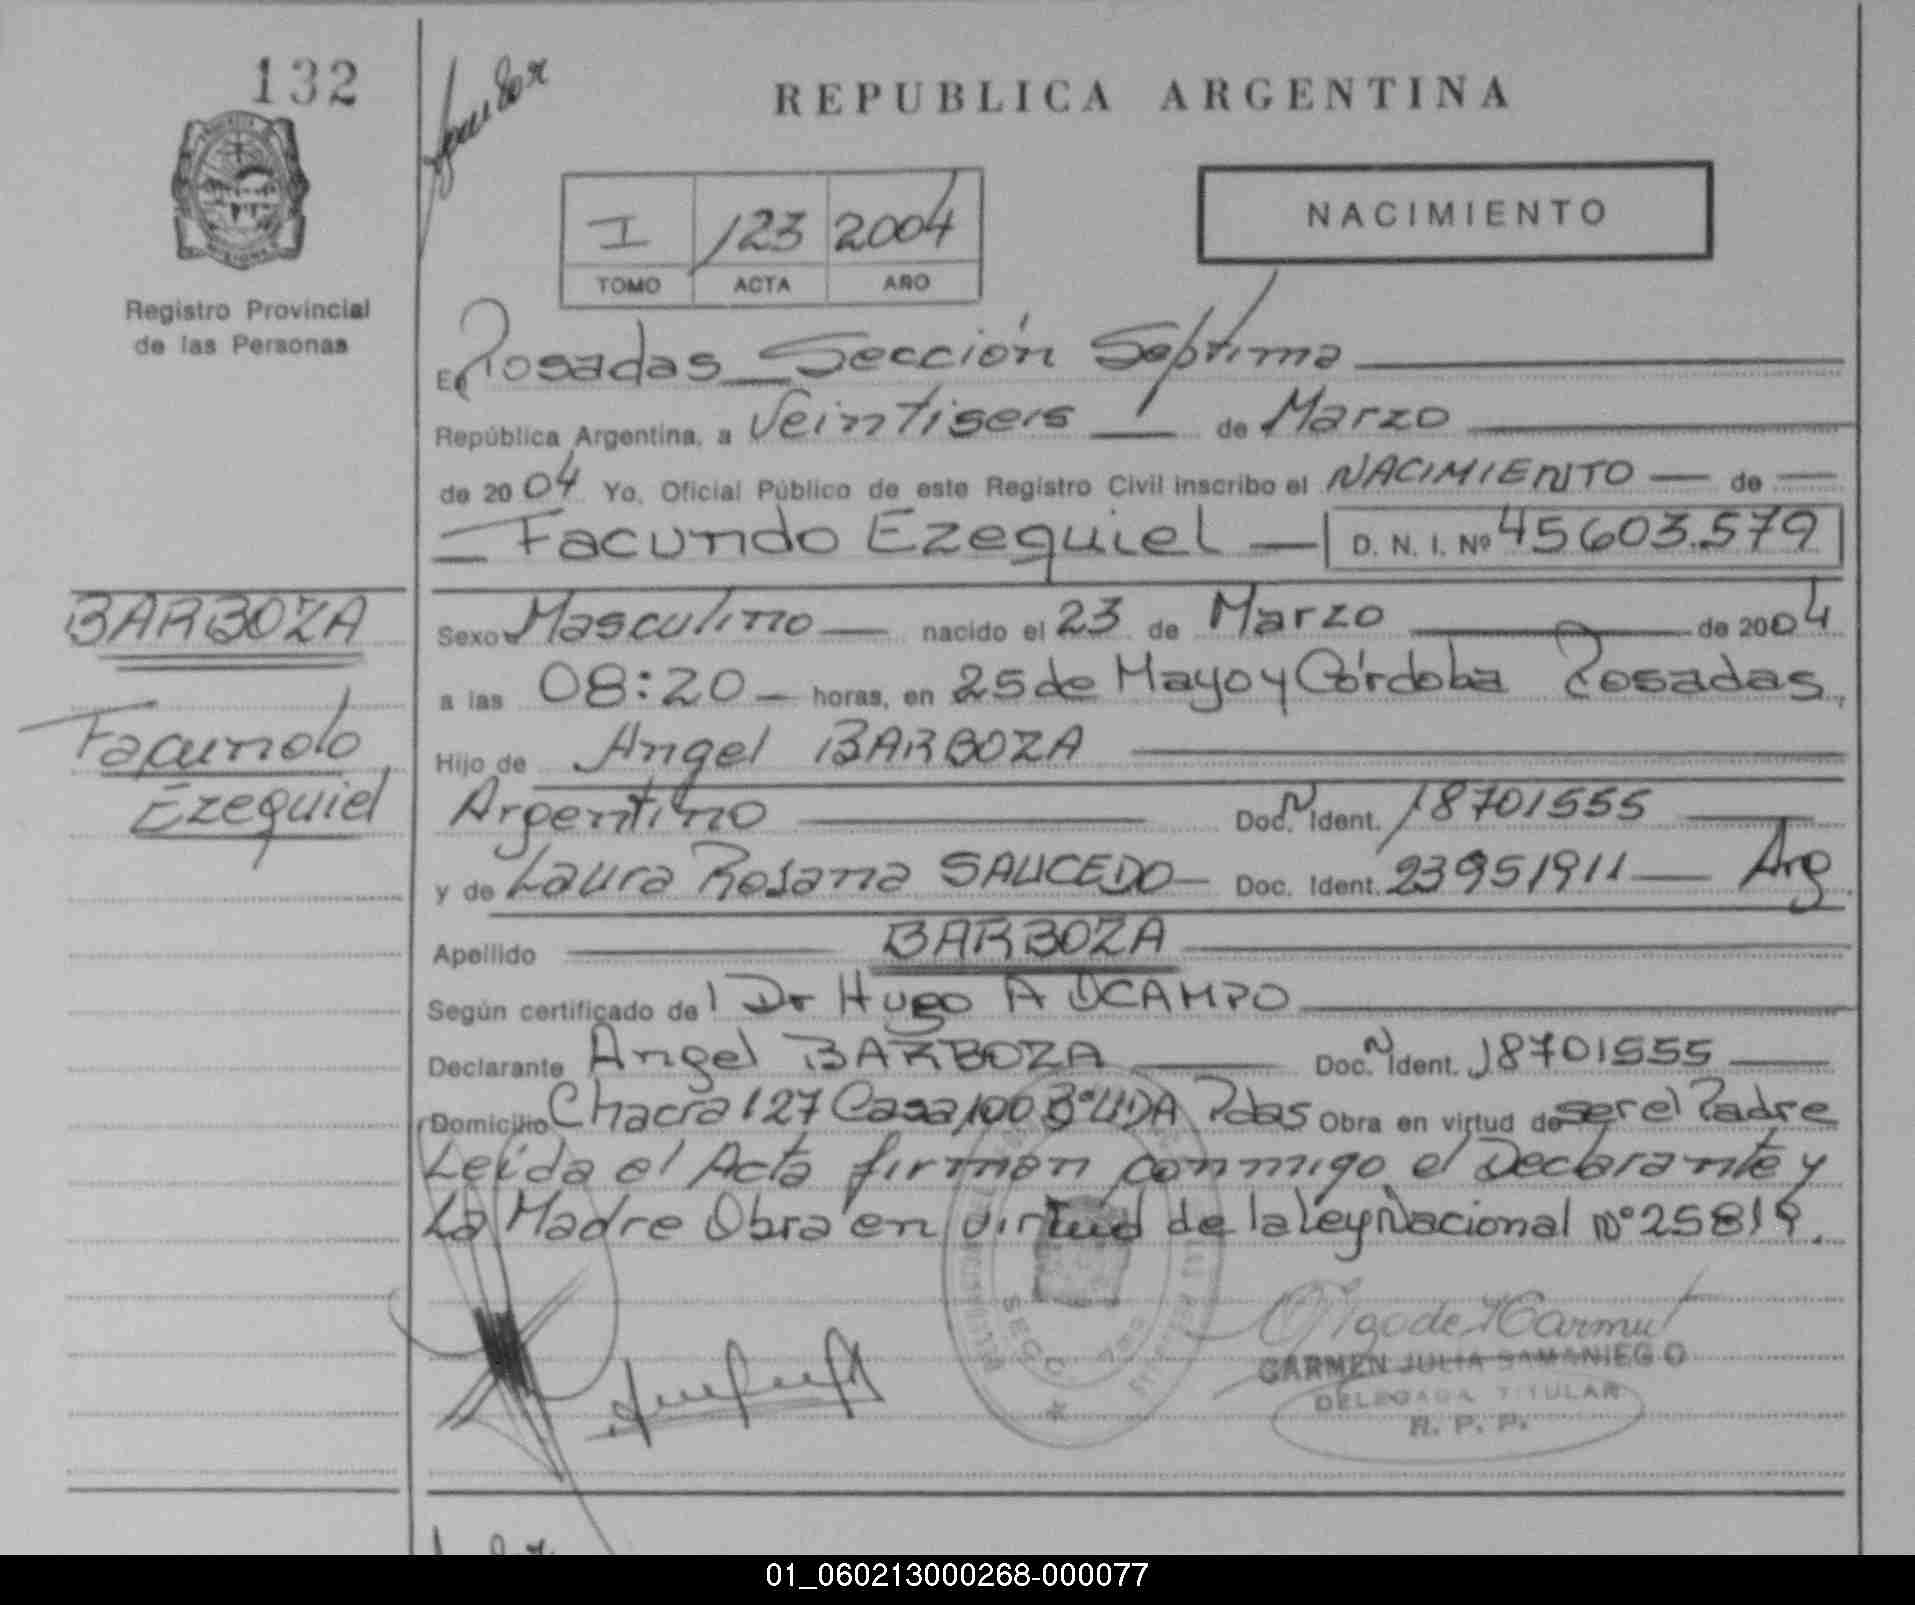 132
REPUBLICA ARGENTINA
Registro Provincial
de las Personas
I 123 2004
TOMO ACTA AÑO
NACIMIENTO
En Posadas Sección Séptima
República Argentina, a Veintiseis de Marzo
de 2004 Yo, Oficial Público de este Registro Civil inscribo el NACIMIENTO de
Facundo Ezequiel D. N. I. Nº 45603.579
BARBOZA
Facundo
Ezequiel
Sexo Masculino nacido el 23 de Marzo de 2004
a las 08:20 horas, en 25 de Mayo y Córdoba Posadas,
Hijo de Angel BARBOZA
Argentino Doc. N Ident. 18701555
y de Laura Rosana SAUCEDO Doc. Ident. 23951911 Arg
Apellido BARBOZA
Según certificado de l Dr Hugo A OCAMPO
Declarante Angel BARBOZA Doc. N Ident. 18701555
Domicilio Chacra 127 Casa 100 Bº UDA Pdas Obra en virtud de ser el Padre
Leída el Acta firman conmigo el Declarante y
La Madre Obra en virtud de la Ley Nacional Nº 25819.
CARMEN JULIA SAMANIEGO
DELEGADA TITULAR
R. P. P.
SECC.
01_060213000268-000077